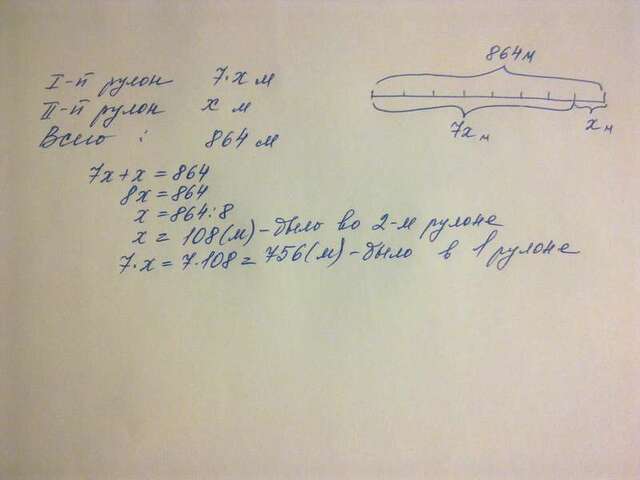 I-й рулон 7·x м
II-й рулон x м
Всего : 864 м
864м
7x м
x м
7x+x=864
8x=864
x=864:8
x=108(м)-было во 2-м рулоне
7·x=7·108=756(м)-было в 1 рулоне